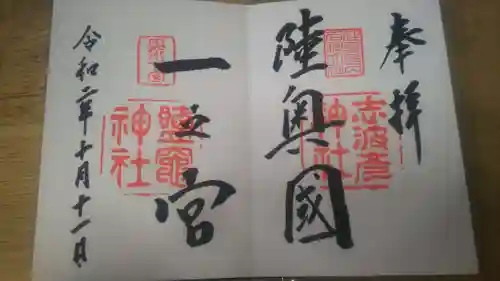 奉拝
志波彦
神社
陸奥國
一之宮
鹽竈
神社
令和二年十月十一日